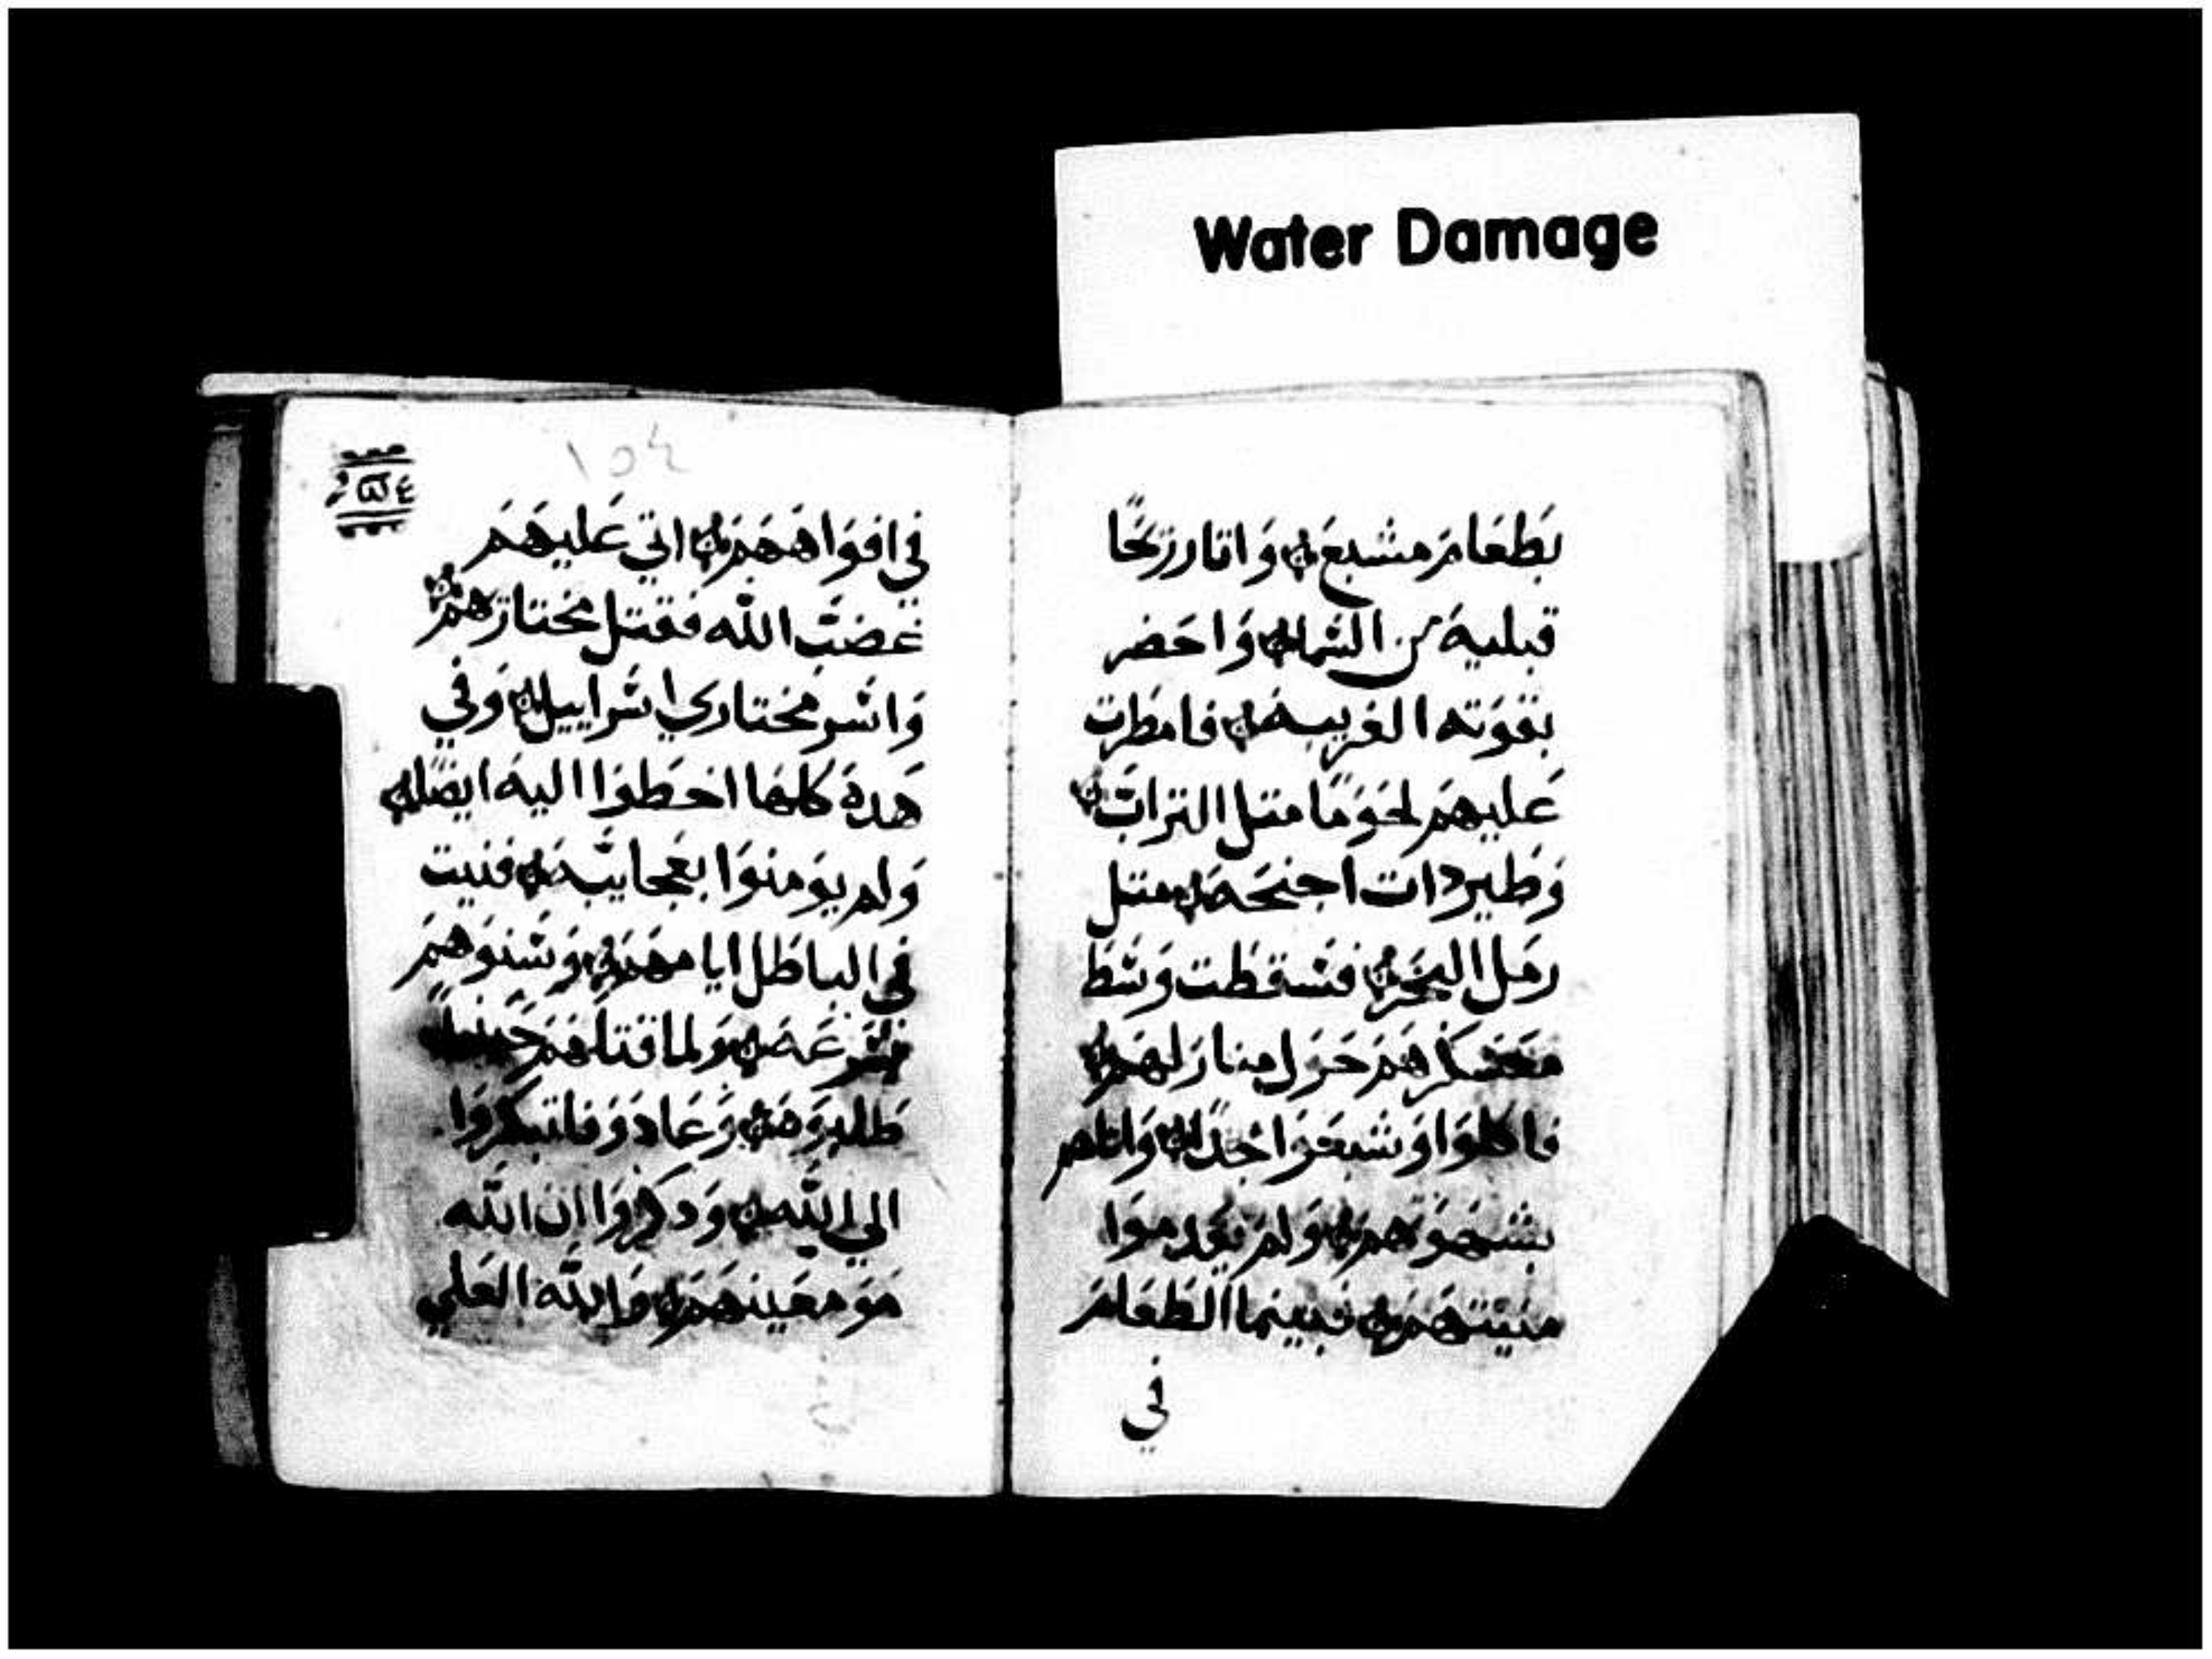 Water Damage
بطعام مشبع وانار ريحًا
قبلية من السما واحضر
بقوته الغريبه فامطرت
عليهم لحومًا متل التراب
وطير دات اجنحه متل
رمل البحر فسقطت وسط
معسكرهم حول منازلهم
فاكلوا وشبعوا جدًا واتاهم
بشهوتهم ولم يعدموا
منيتهم فبينما الطعام
في
١٥٤
في افواههم اتي عليهم
غضب الله فقتل مختارهم
واسر مختاري اسراييل وفي
هده كلها اخطوا اليه ايضًا
ولم يومنوا بعجايبه فنيت
في الباطل ايامهم وسنوهم
بسرعه ولما قتلهم حينيدٍ
طلبوه وعادوا فابتكروا
الي الله ودكروا ان الله
هو معينهم والله العلي